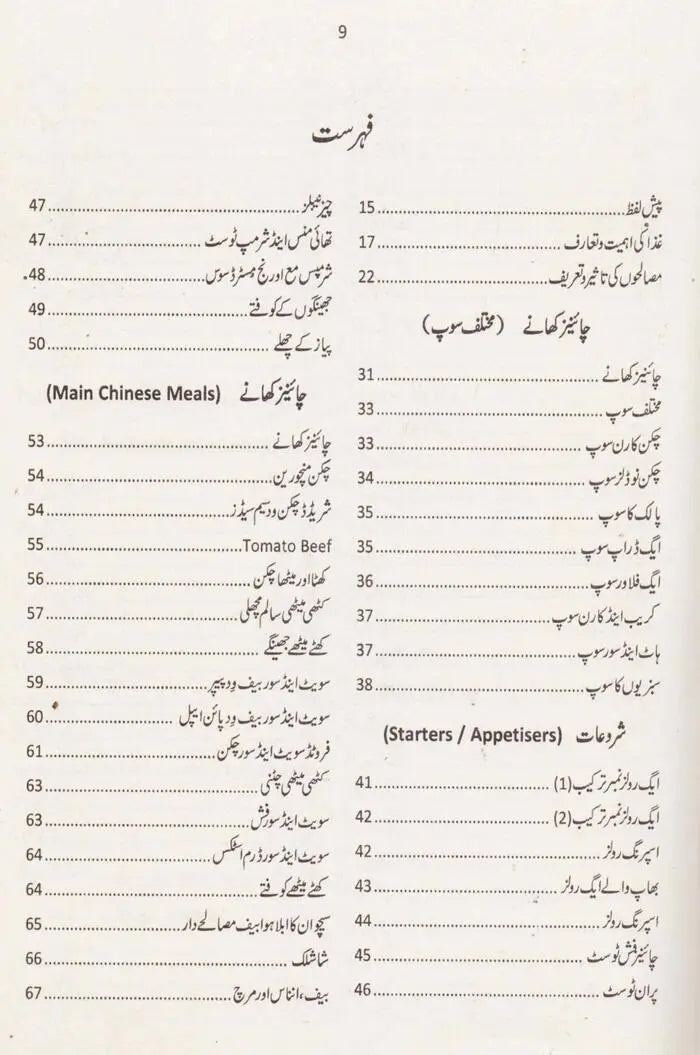 9
فہرست
پیش لفظ 15
غذا کی اہمیت و تعارف 17
مصالحوں کی تاثیر و تعریف 22
چائنیز کھانے (مختلف سوپ)
چائنیز کھانے 31
مختلف سوپ 33
چکن کارن سوپ 33
چکن نوڈلز سوپ 34
پالک کا سوپ 35
ایگ ڈراپ سوپ 35
ایگ فلاور سوپ 36
کریب اینڈ کارن سوپ 37
ہاٹ اینڈ سور سوپ 37
سبزیوں کا سوپ 38
شروعات (Starters / Appetisers)
ایگ رولز نمبر ترکیب (1) 41
ایگ رولز نمبر ترکیب (2) 42
اسپرنگ رولز 42
بھاپ والے ایگ رولز 43
اسپرنگ رولز 44
چائنیز فش ٹوسٹ 45
پران ٹوسٹ 46
چیز نبلز 47
تھائی منس اینڈ شرمپ ٹوسٹ 47
شرمپس مع اورنج مسٹرڈ سوس 48
جھینگوں کے کوفتے 49
پیاز کے چھلے 50
چائنیز کھانے (Main Chinese Meals)
چائنیز کھانے 53
چکن منچورین 54
شریڈڈ چکن ود سیم سیڈز 54
Tomato Beef 55
کھٹا اور میٹھا چکن 56
کٹھی میٹھی سالم مچھلی 57
کھٹے میٹھے جھینگے 58
سویٹ اینڈ سور بیف ود پیپر 59
سویٹ اینڈ سور بیف ود پائن ایپل 60
فروٹڈ سویٹ اینڈ سور چکن 61
کٹھی میٹھی چٹنی 63
سویٹ اینڈ سور فش 63
سویٹ اینڈ سور ڈرم اسٹکس 64
کھٹے میٹھے کوفتے 64
سچوان کا ابلا ہوا بیف مصالحے دار 65
شاشلک 66
بیف، انناس اور مرچ 67